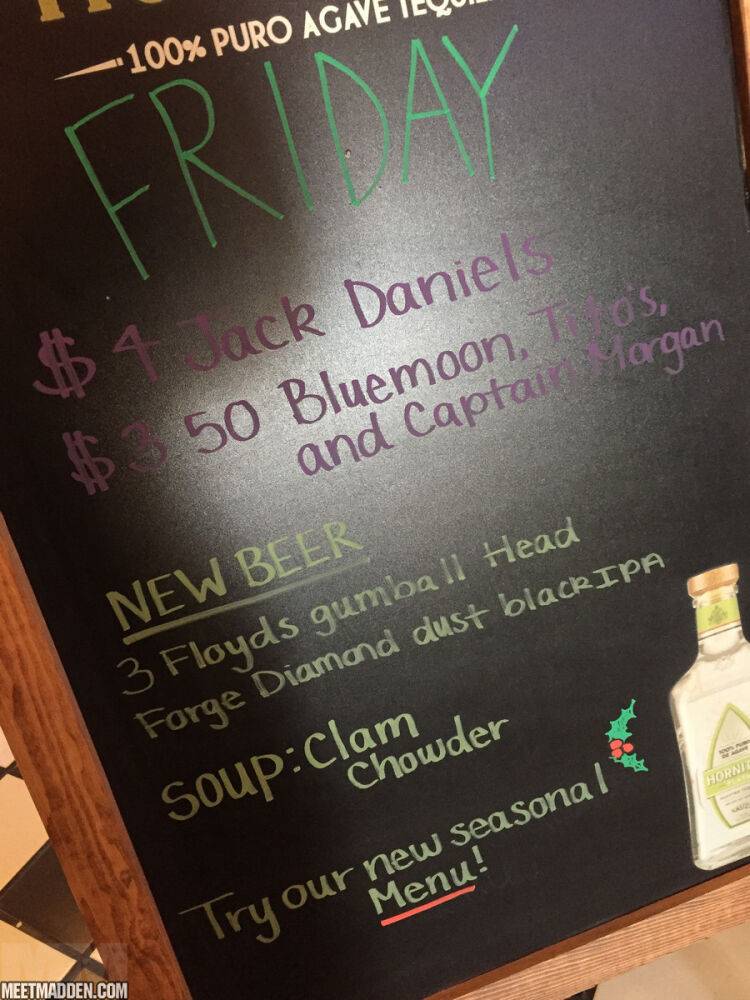 100% PURO AGAVE
FRIDAY
$4 Jack Daniels
$3 50 Bluemoon, Tito's,
and Captain Morgan
NEW BEER
3 Floyds gumball Head
Forge Diamond dust black IPA
Soup: Clam
Chowder
Try our new seasonal
Menu!
MEETMADDEN.COM